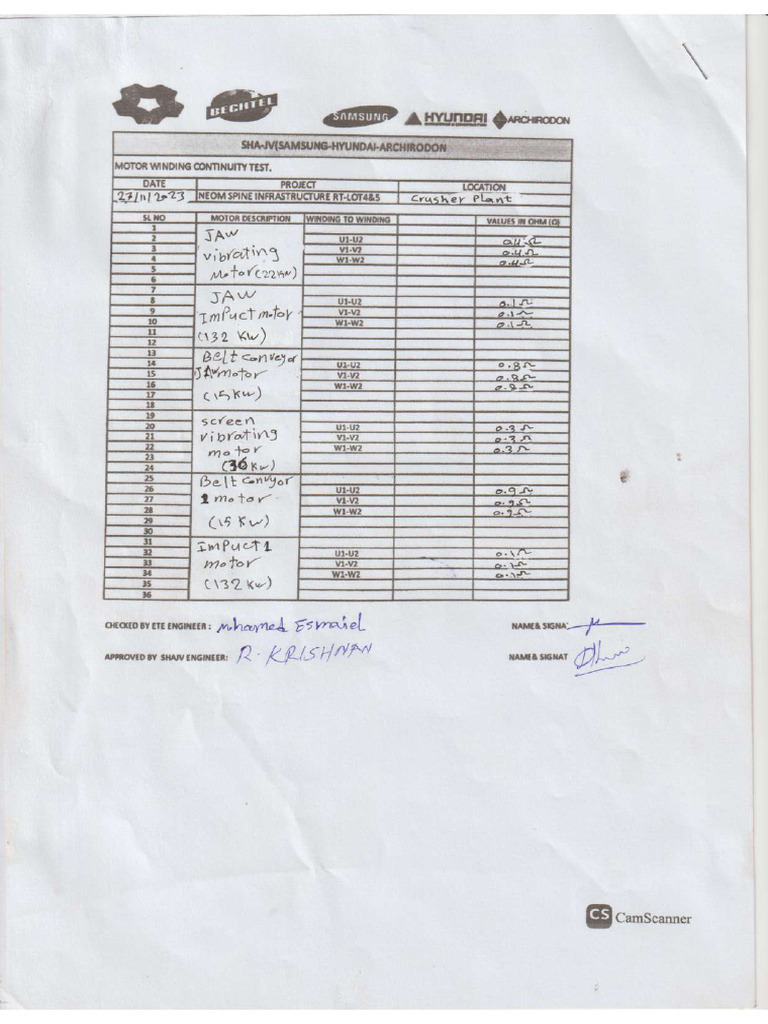 BECHTEL
SAMSUNG
HYUNDAI
ARCHIRODON
SHA-JV(SAMSUNG-HYUNDAI-ARCHIRODON
MOTOR WINDING CONTINUITY TEST.
DATE PROJECT LOCATION
27/11/2023 NEOM SPINE INFRASTRUCTURE RT-LOT4&5 Crusher Plant
SL NO MOTOR DESCRIPTION WINDING TO WINDING VALUES IN OHM (Ω)
1 JAW
2 U1-U2 0.4Ω
3 vibrating V1-V2 0.4Ω
4 W1-W2 0.4Ω
5 Motor (22KW)
6
7 JAW
8 U1-U2 0.1Ω
9 ImPuct motor V1-V2 0.1Ω
10 W1-W2 0.1Ω
11 (132 KW)
12
13 Belt conveyor
14 U1-U2 0.8Ω
15 JAW motor V1-V2 0.8Ω
16 W1-W2 0.8Ω
17 (15 KW)
18
19 screen
20 U1-U2 0.3Ω
21 vibrating V1-V2 0.3Ω
22 motor W1-W2 0.3Ω
23
24 (30 Kw)
25 Belt convyor
26 U1-U2 0.9Ω
27 1 motor V1-V2 0.9Ω
28 W1-W2 0.9Ω
29 (15 KW)
30
31 ImPuct 1
32 U1-U2 0.1Ω
33 motor V1-V2 0.1Ω
34 W1-W2 0.1Ω
35 (132 KW)
36
CHECKED BY ETE ENGINEER : Mohamed Esmaiel NAME& SIGNAT
APPROVED BY SHAJV ENGINEER: R. KRISHNAN NAME& SIGNAT
CS CamScanner